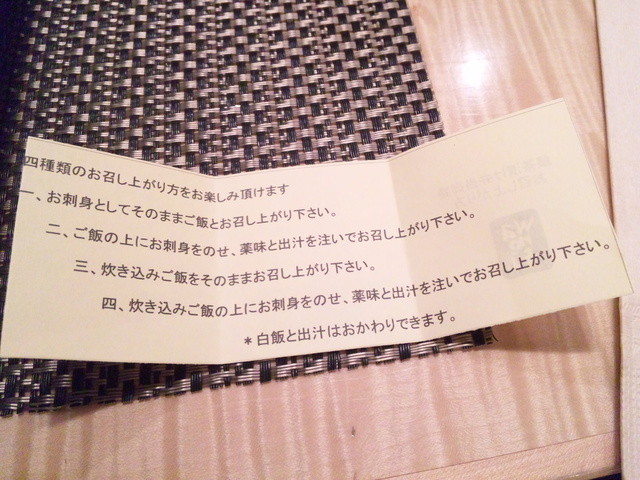 四種類のお召し上がり方をお楽しみ頂けます
一、お刺身としてそのままご飯とお召し上がり下さい。
二、ご飯の上にお刺身をのせ、薬味と出汁を注いでお召し上がり下さい。
三、炊き込みご飯をそのままお召し上がり下さい。
四、炊き込みご飯の上にお刺身をのせ、薬味と出汁を注いでお召し上がり下さい。
＊白飯と出汁はおかわりできます。